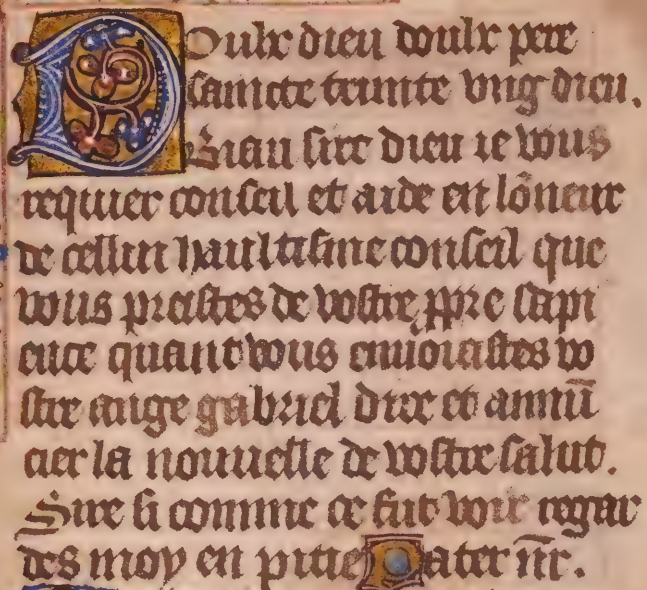 Doulx dieu doulx pere
saincte trinite ung dieu.
Biau sire dieu ie vous
requier conseil et aide en lõneur
de cellui haultisme conseil que
vous preistes de vostre ꝓpre sapi
ence quant vous envoiastes vo
stre ange gabriel dire et annũ
cier la nouuelle de vostre salut.
Sire si comme ce fut voir regar
des moy en pitie Pater nr̃.